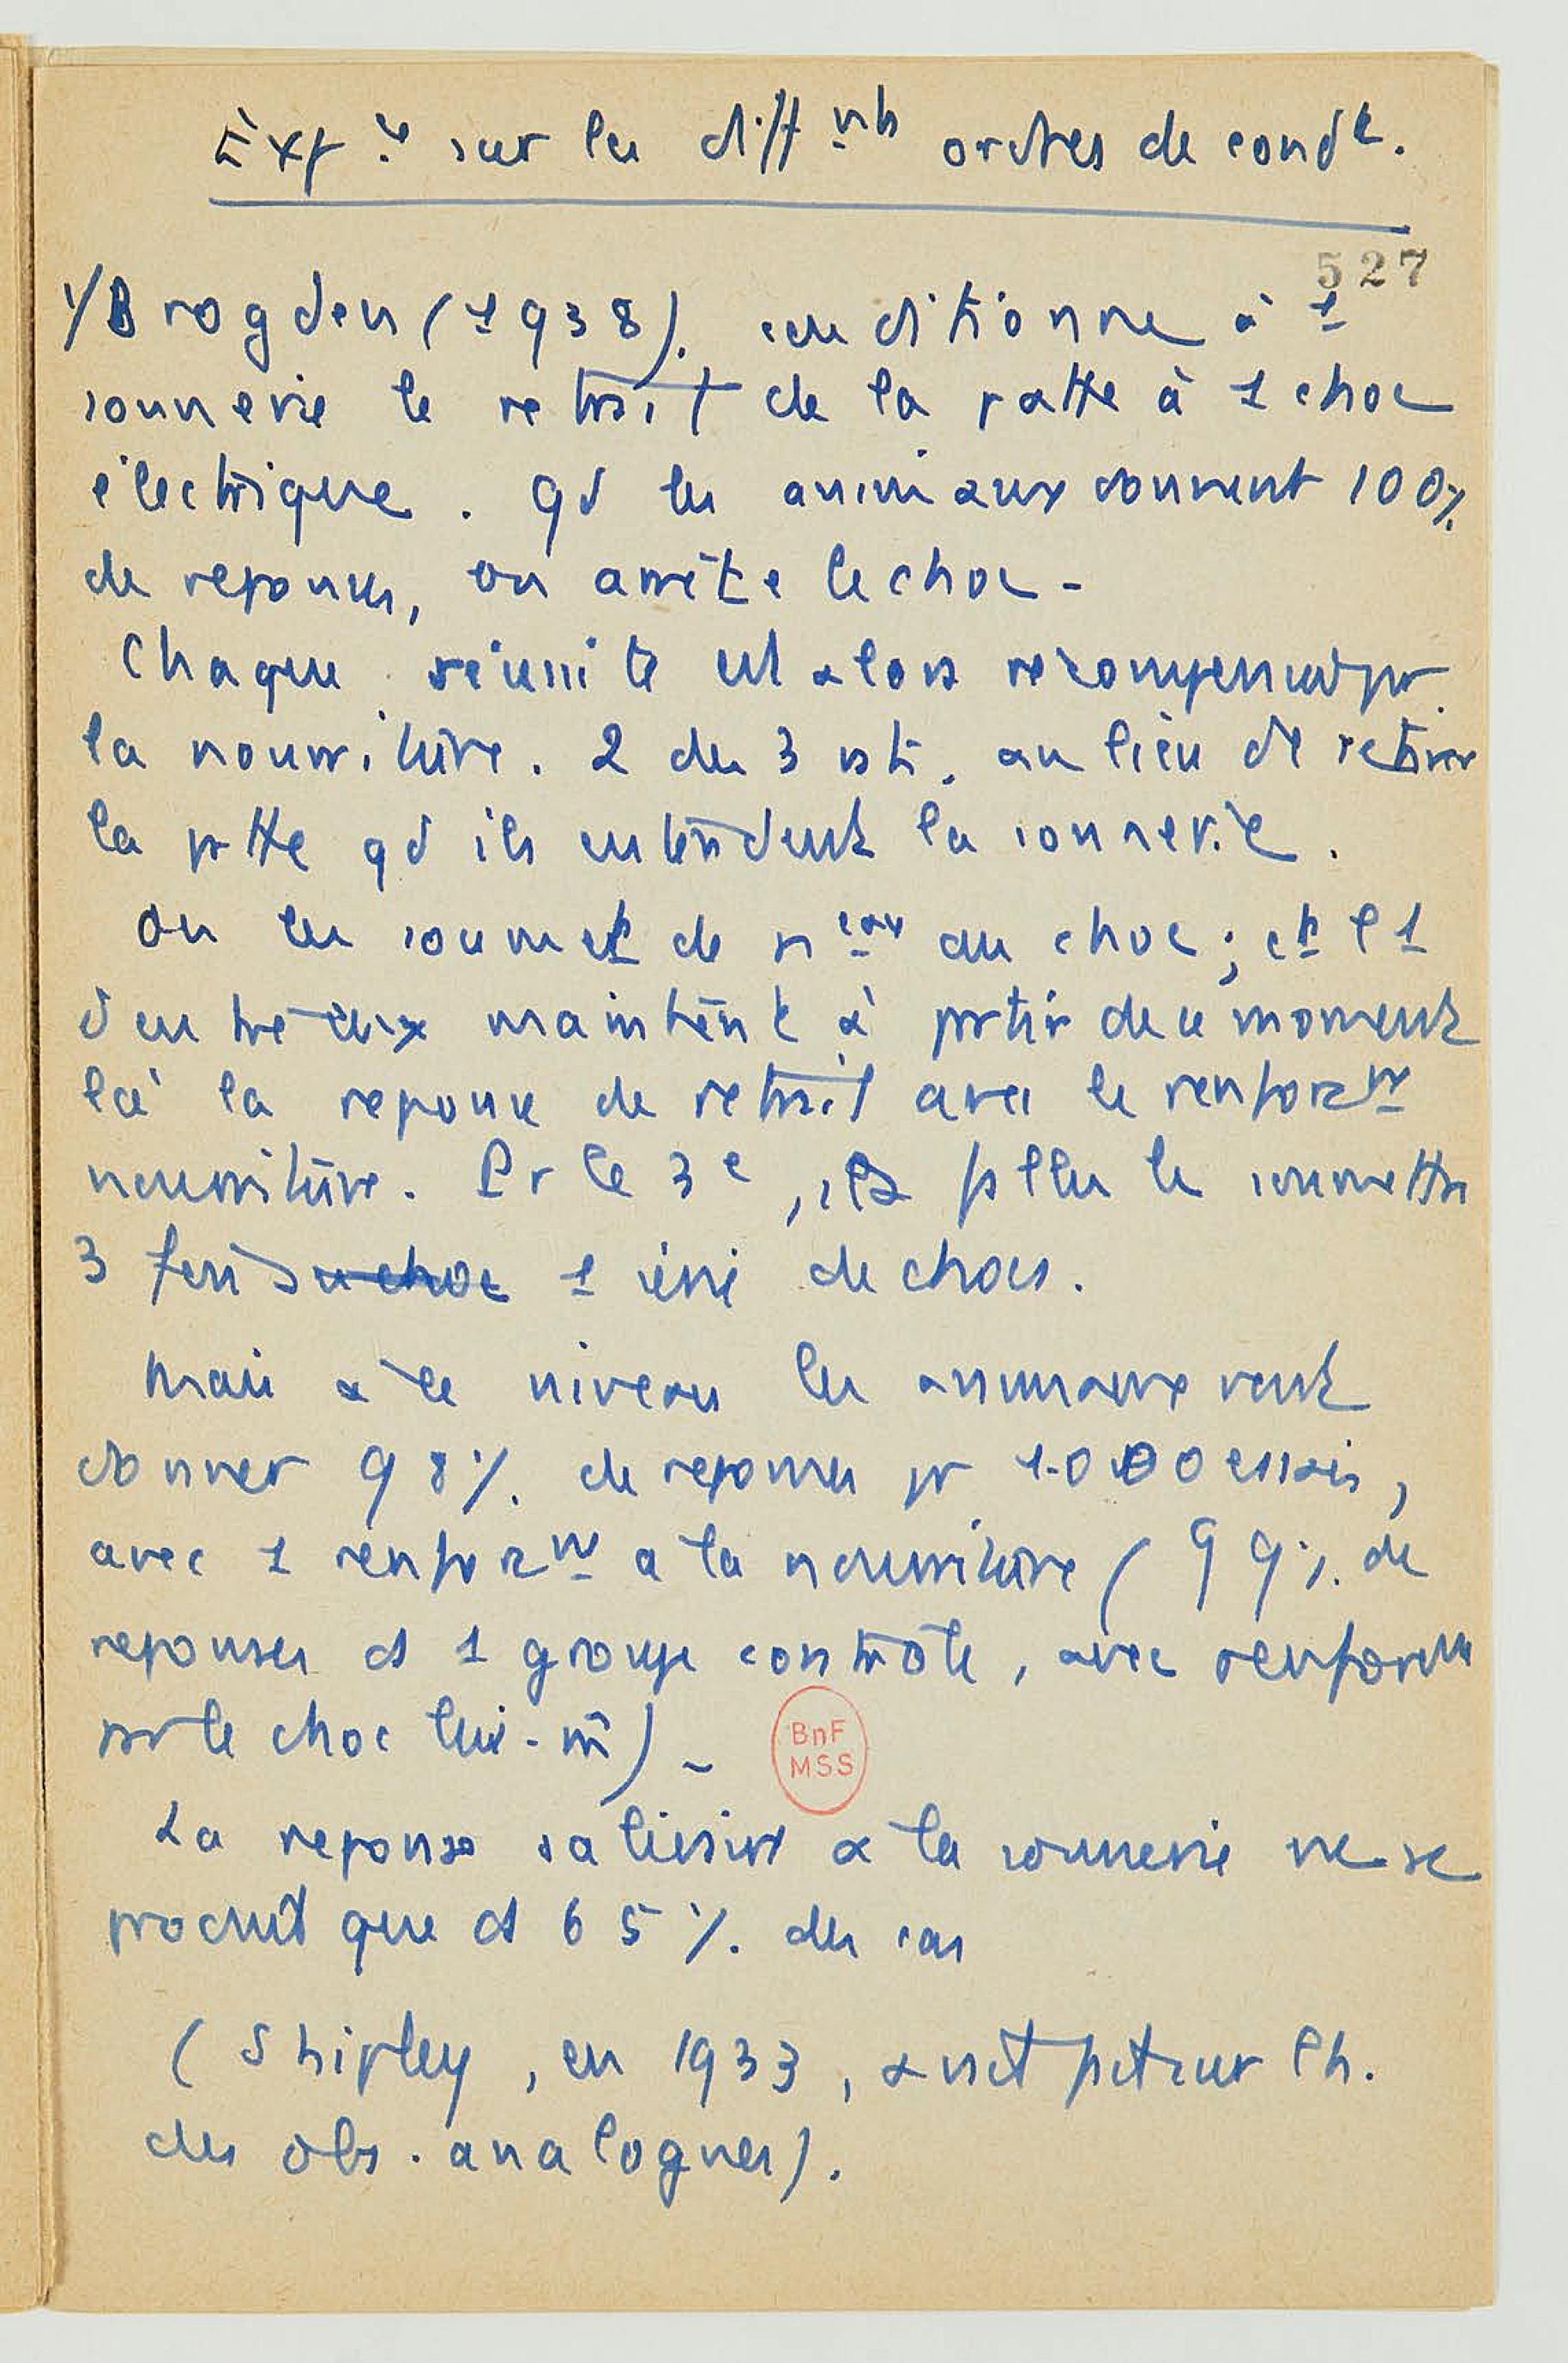 Exp ce sur les diff nts ordres de cond t.
527
1/ Brogden (1938). conditionne à 1
sonnerie le retrait de la patte à 1 choc
électrique. qd les animaux donnent 100%
de reponses, on arrête le choc -
Chaque réussite est alors recompensée par
la nourriture. 2 des 3 au lieu de retirer
la ptte qd ils entendent la sonnerie.
On les soumet de n eau au choc ; et l'1
d'entre eux maintient à partir de ce moment
là la reponse de retrait avec le renforc nt
nourriture. Pr le 3e, il a fallu le soumettre
3 fois du choc 1 série de chocs.
Mais à ce niveau les animaux vont
donner 98%. de reponses pr 1.000 essais,
avec 1 renforc nt a la nourriture (99%. de
reponses ds 1 groupe contrôle, avec renforcm
par le choc lui-m̂) -
BnF
MSS
La reponse salivaire a la sonnerie ne se
produit que ds 65 %. des cas
(Shipley, en 1933, avait fait sur l'h.
des obs. analogues).